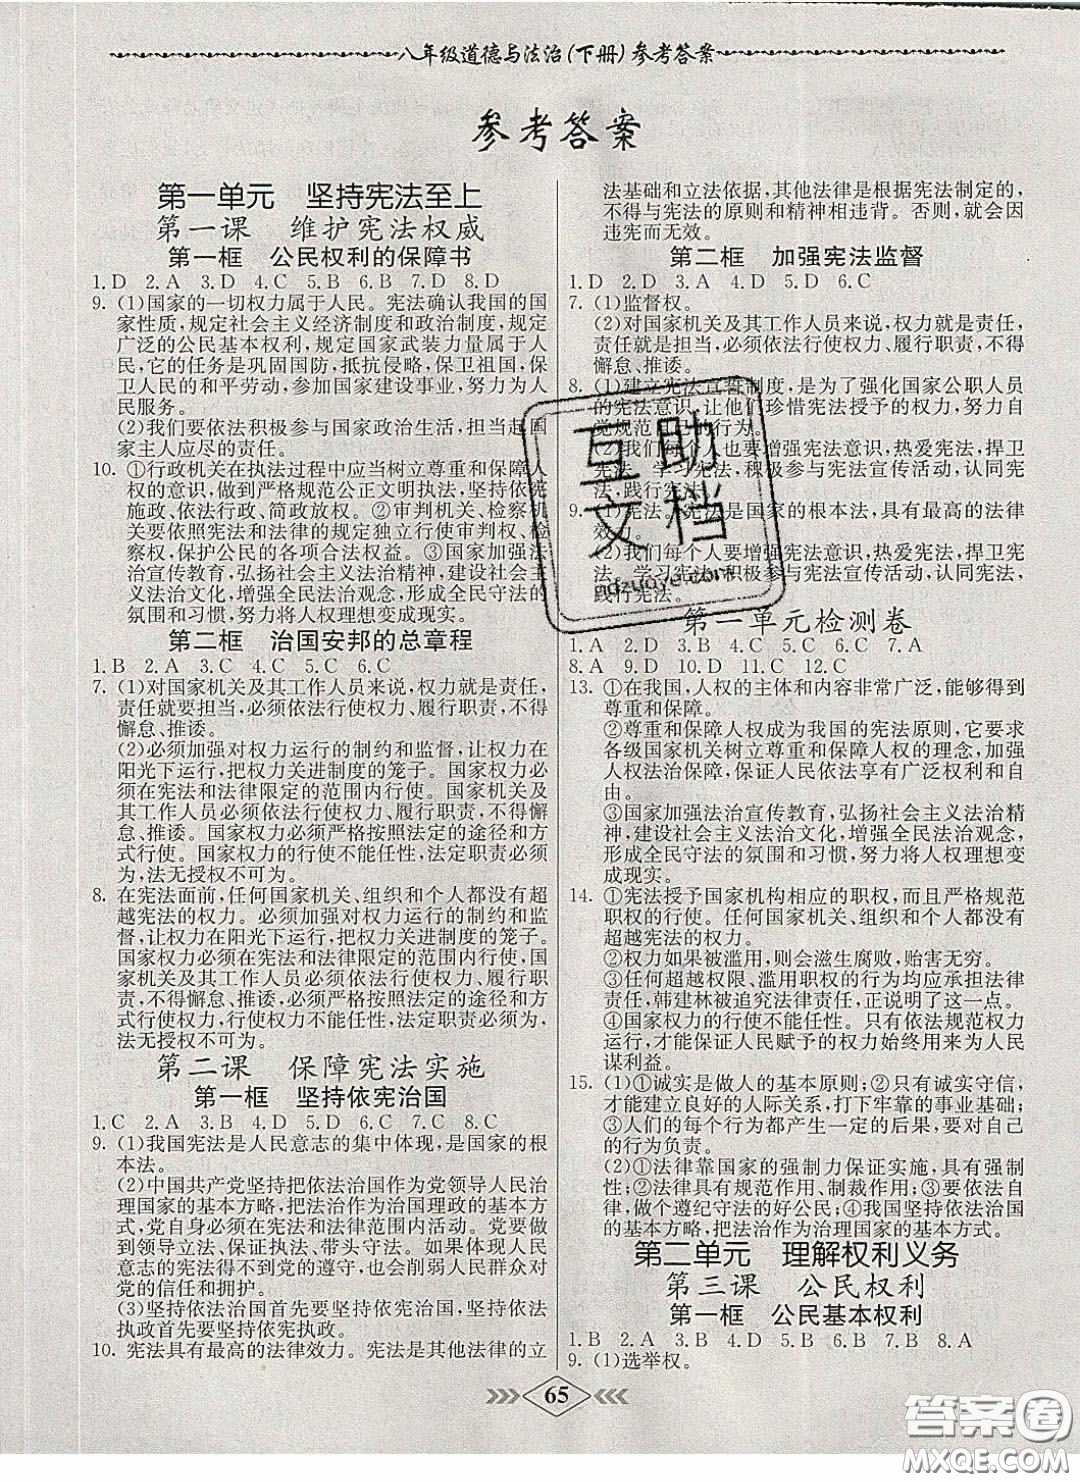 八年级道德与法治(下册)参考答案
参考答案
第一单元 坚持宪法至上
第一课 维护宪法权威
第一框 公民权利的保障书
1.D 2.A 3.D 4.C 5.B 6.B 7.D 8.D
9. (1)国家的一切权力属于人民。宪法确认我国的国
家性质,规定社会主义经济制度和政治制度,规定
广泛的公民基本权利,规定国家武装力量属于人
民,它的任务是巩固国防,抵抗侵略,保卫祖国,保
卫人民的和平劳动,参加国家建设事业,努力为人
民服务。
(2)我们要依法积极参与国家政治生活,担当起国
家主人应尽的责任。
10. ①行政机关在执法过程中应当树立尊重和保障人
权的意识,做到严格规范公正文明执法,坚持依宪
施政、依法行政、简政放权。②审判机关、检察机
关要依照宪法和法律的规定独立行使审判权、检
察权,保护公民的各项合法权益。③国家加强法
治宣传教育,弘扬社会主义法治精神,建设社会主
义法治文化,增强全民法治观念,形成全民守法的
氛围和习惯,努力将人权理想变成现实。
第二框 治国安邦的总章程
1.B 2.A 3.C 4.D 5.C 6.C
7. (1)对国家机关及其工作人员来说,权力就是责任,
责任就要担当,必须依法行使权力、履行职责,不得
懈怠、推诿。
(2)必须加强对权力运行的制约和监督,让权力在
阳光下运行,把权力关进制度的笼子。国家权力必
须在宪法和法律限定的范围内行使。国家机关及
其工作人员必须依法行使权力、履行职责,不得懈
怠、推诿。国家权力必须严格按照法定的途径和方
式行使。国家权力的行使不能任性,法定职责必须
为,法无授权不可为。
8. 在宪法面前,任何国家机关、组织和个人都没有超
越宪法的权力。必须加强对权力运行的制约和监
督,让权力在阳光下运行,把权力关进制度的笼子。
国家权力必须在宪法和法律限定的范围内行使,国
家机关及其工作人员必须依法行使权力、履行职
责,不得懈怠、推诿,必须严格按照法定的途径和方
式行使权力,行使权力不能任性,法定职责必须为,
法无授权不可为。
第二课 保障宪法实施
第一框 坚持依宪治国
1.C 2.A 3.B 4.D 5.D 6.C 7.C 8.C
9. (1)我国宪法是人民意志的集中体现,是国家的根
本法。
(2)中国共产党坚持把依法治国作为党领导人民治
理国家的基本方略,把法治作为治国理政的基本方
式,党自身必须在宪法和法律范围内活动。党要做
到领导立法、保证执法、带头守法。如果体现人民
意志的宪法得不到党的遵守,也会削弱人民群众对
党的信任和拥护。
(3)坚持依法治国首先要坚持依宪治国,坚持依法
执政首先要坚持依宪执政。
10. 宪法具有最高的法律效力。宪法是其他法律的立
法基础和立法依据,其他法律是根据宪法制定的,
不得与宪法的原则和精神相违背。否则,就会因
违宪而无效。
第二框 加强宪法监督
1.D 2.A 3.C 4.D 5.D 6.C
7. (1)监督权。
(2)对国家机关及其工作人员来说,权力就是责任,
责任就是担当,必须依法行使权力、履行职责,不得
懈怠、推诿。
8. (1)建立宪法宣誓制度,是为了强化国家公职人员
的宪法意识,让他们珍惜宪法授予的权力,自
觉规范自己的行为。
(2)我们每个人也要增强宪法意识,热爱宪法,捍卫
宪法,学习宪法,积极参与宪法宣传活动,认同宪
法,践行宪法。
9. (1)宪法。宪法是国家的根本法,具有最高的法律
效力。
(2)我们每个人要增强宪法意识,热爱宪法,捍卫宪
法,学习宪法,积极参与宪法宣传活动,认同宪法,
践行宪法。
第一单元检测卷
1.A 2.D 3.B 4.D 5.C 6.C 7.A
8.A 9.D 10.D 11.C 12.C
13. ①在我国,人权的主体和内容非常广泛,能够得到
尊重和保障。
②尊重和保障人权成为我国的宪法原则,它要求
各级国家机关树立尊重和保障人权的理念,加强
人权法治保障,保证人民依法享有广泛权利和自
由。
③国家加强法治宣传教育,弘扬社会主义法治精
神,建设社会主义法治文化,增强全民法治观念,
形成全民守法的氛围和习惯,努力将人权理想变
成现实。
14. ①宪法授予国家机构相应的职权,而且严格规范
职权的行使。任何国家机关、组织和个人都没有
超越宪法的权力。
②权力如果被滥用,则会滋生腐败,贻害无穷。
③任何超越权限、滥用职权的行为均应承担法律
责任,韩建林被追究法律责任,正说明了这一点。
④国家权力的行使不能任性。只有依法规范权力
运行,才能保证人民赋予的权力始终用来为人民
谋利益。
15. (1)①诚实是做人的基本原则;②忠诚老实守信,
才能建立良好的人际关系,打下牢靠的事业基础;
③人们的每个行为都产生一定的后果,要对自己
的行为负责。
(2)①法律靠国家的强制力保证实施,具有强制
性;②法律具有规范作用、制裁作用;③要依法自
律,做个遵纪守法的好公民;④我国坚持依法治国
的基本方略,把法治作为治理国家的基本方式。
第二单元 理解权利义务
第三课 公民权利
第一框 公民基本权利
1.B 2.A 3.B 4.D 5.B 6.D 7.B 8.A
9. (1)选举权。
65
互助
文档
hdzuoye.com
答案圈
MXQE.COM